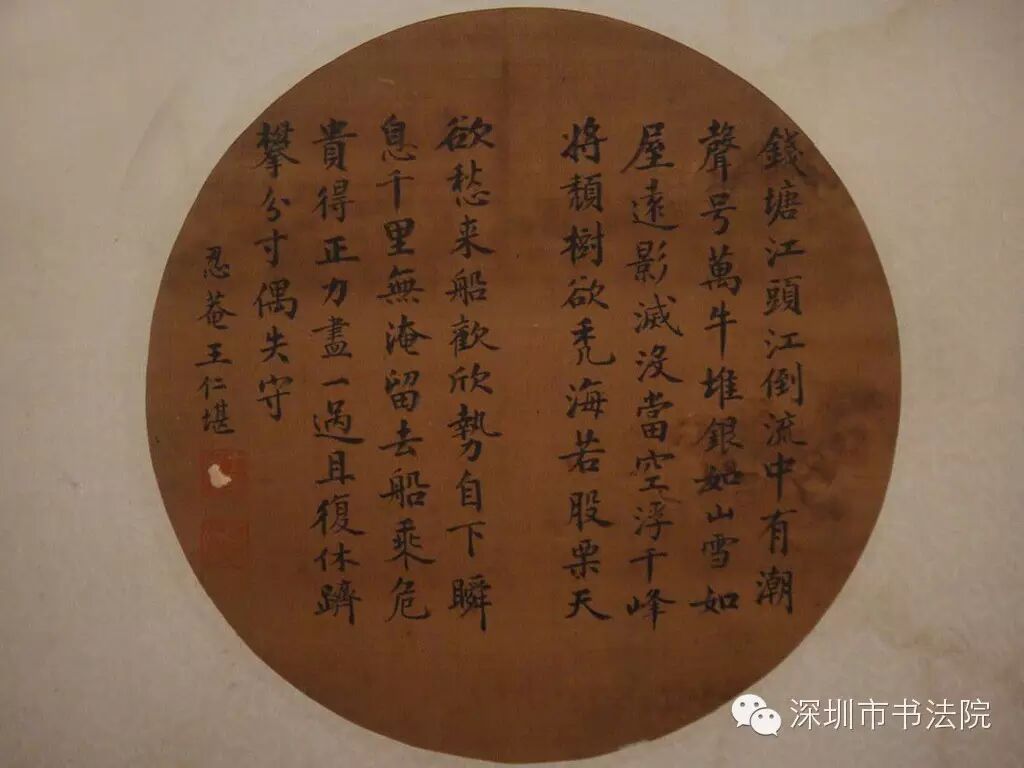 錢塘江頭江倒流中有潮
聲号萬牛堆銀如山雪如
屋遠影滅没當空浮千峰
将頽樹欲禿海若股栗天
欲愁来船歡欣勢自下瞬
息千里無淹留去船乘危
貴得正力盡一過且復休躋
攀分寸偶失守
忍菴王仁堪
深圳市书法院